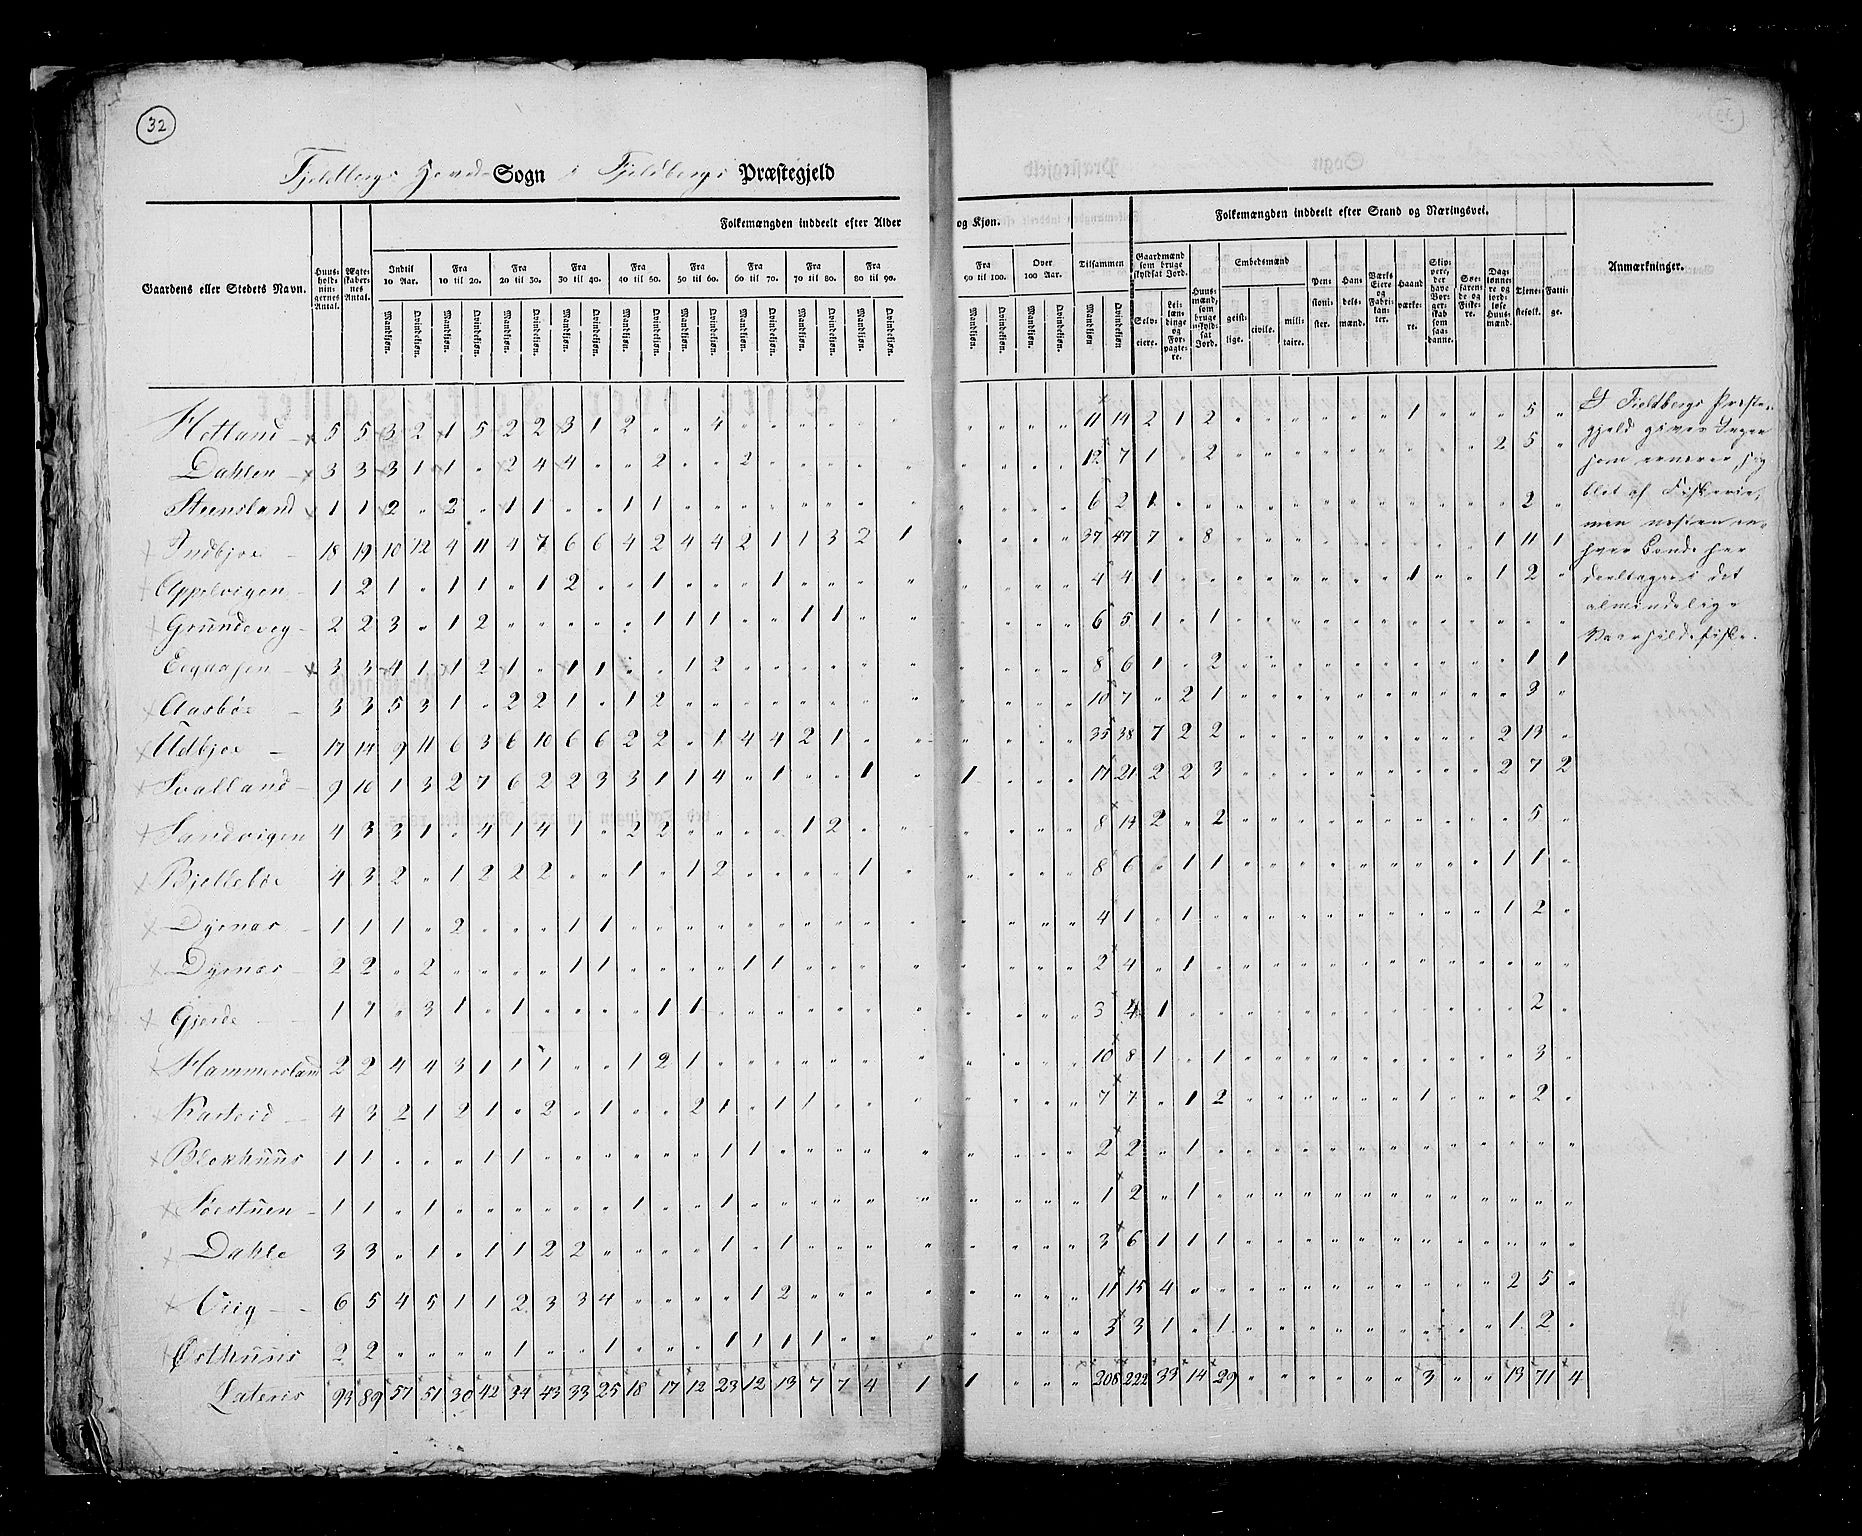 32
Fjeldbergs Hoved- Sogn i Fjeldbergs Præstegjeld
Gaardens eller Stedets Navn.
Huus-holdningernes Antal.
Ægteskabernes Antal.
Folkemængden inddeelt efter Alder og Kjøn.
Indtil 10 Aar. Fra 10 til 20. Fra 20 til 30. Fra 30 til 40. Fra 40 til 50. Fra 50 til 60. Fra 60 til 70. Fra 70 til 80. Fra 80 til 90. Fra 90 til 100. Over 100 Aar. Tilsammen
Mandkjøn. Qvindekjøn.
Folkemængden inddeelt efter Stand og Næringsvei.
Gaardmænd som bruge skyldsat Jord.
Selv-eiere. Leilændinge og Forpagtere.
Huusmænd, som bruge uskyldsat Jord.
Embedsmænd
geistlige. civile. militaire.
Pensionister. Handelsmænd. Værks Eiere og Fabrikanter. Haandværkere.
Skippere, der have Borgerskab som saadanne.
Søefarende og Fiskere.
Dagslønnere og jordløse Huusmænd.
Tjenestefolk. Fattige.
Anmærkninger.
Hetland 5 5 3 2 1 5 2 2 3 1 2 " " 4 " " " " " " " " " " 11 14 2 1 2 " " " " " " 1 " " " 5 "
Dahlen 3 3 3 1 1 " 2 4 4 " " 2 " " 2 " " " " " " " " " 12 7 1 " 2 " " " " " " " " " 2 5 "
Steensland 1 1 2 " 2 " 1 1 " " 1 1 " " " " " " " " " " " " 6 2 1 " " " " " " " " " " " " 2 "
Indbjoe 18 19 10 12 4 11 4 7 6 6 4 2 4 4 2 1 1 3 2 1 " " " " 37 47 7 " 8 " " " " " " " " " 1 11 1
Appelvigen 1 2 1 " 1 1 " 1 2 " " 1 " " " 1 " " " " " " " " 4 4 1 " " " " " " " " 1 " " 1 2 "
Grundeveg 2 2 3 " 1 2 " " " " " 1 1 1 " " 1 1 " " " " " " 6 5 1 " 1 " " " " " " " " " " " "
3 3 4 1 1 2 1 " 1 1 " " 1 2 " " " " " " " " " " 8 6 1 " 2 " " " " " " " " " " 1 1
Aasbøe 3 3 5 3 1 " 2 2 1 " 1 2 " " " " " " " " " " " " 10 7 " 2 1 " " " " " " " " " " 3 "
Udbjoe 17 14 9 11 6 3 6 10 6 6 2 2 " 1 4 4 2 1 " " " " " " 35 38 7 2 2 " " " " " " " " " 2 13 "
Svalland 9 10 1 3 2 7 6 2 2 3 3 1 1 4 " 1 " " 1 " 1 " " " 17 21 2 2 3 " " " " " " " " " 2 7 2
Sandvigen 4 3 3 1 " 4 1 4 1 " 2 2 " " " " 1 2 " " " " " " 8 14 2 " 2 " " " " " " " " " " 5 "
Bjelkebøe 4 3 2 " 1 2 2 2 " " 1 " 1 2 " " " " 1 " " " " " 8 6 " 1 1 " " " " " " " " " 1 1 "
Dyrnæs 1 1 1 " 2 " " " 1 1 " " " " " " " " " " " " " " 4 1 " 1 " " " " " " " " " " 1 2 "
Dyrnæs 2 2 " 2 " " " " 1 1 " " " " 1 1 " " " " " " " " 2 4 " 1 " " " " " " " " " " " " "
Gjerde 1 1 " 3 1 " 1 " " " " 1 1 " " " " " " " " " " " 3 4 1 " " " " " " " " " " " " 2 "
Hammersland 2 2 4 4 3 1 1 1 " " 1 2 1 " " " " " " " " " " " 10 8 1 " 1 " " " " " " " " " " 3 "
Karteid 4 3 2 1 2 1 " 2 " 1 " " 2 1 " 1 1 " " " " " " " 7 7 " 1 2 " " " " " " 1 " " " 2 "
Blokhuus 1 1 " " " " 1 1 " " " " " " 1 1 " " " " " " " " 2 2 " 1 " " " " " " " " " " " " "
Søestuen 1 1 " 1 " " " " " " 1 " " 1 " " " " " " " " " " 1 2 " 1 " " " " " " " " " " " " "
Dahle 3 3 " 1 " 1 1 2 2 " " " " 1 " 1 " " " " " " " " 3 6 1 1 1 " " " " " " " " " " " "
Viig 6 5 4 5 1 1 2 3 3 4 " " " " 1 2 " " " " " " " " 11 15 4 " " " " " " " " " " " 2 5 "
Østhuus 2 2 " " " " " 1 " " 1 " " " 1 1 1 1 " " " " " " 3 3 1 " 1 " " " " " " " " " 1 2 "
Lateris 93 89 57 51 30 42 34 43 33 25 18 17 12 23 12 13 7 7 4 1 1 " " " 208 222 33 14 29 " " " " " " 3 " " 13 71 4
I Fieldbergs Præste-
gjeld gives Ingen
som ernærer sig
blot af Fiskerie,
men næsten en-
hver Bonde her
deeltager i det
almindelige
Vaarsildefiske.